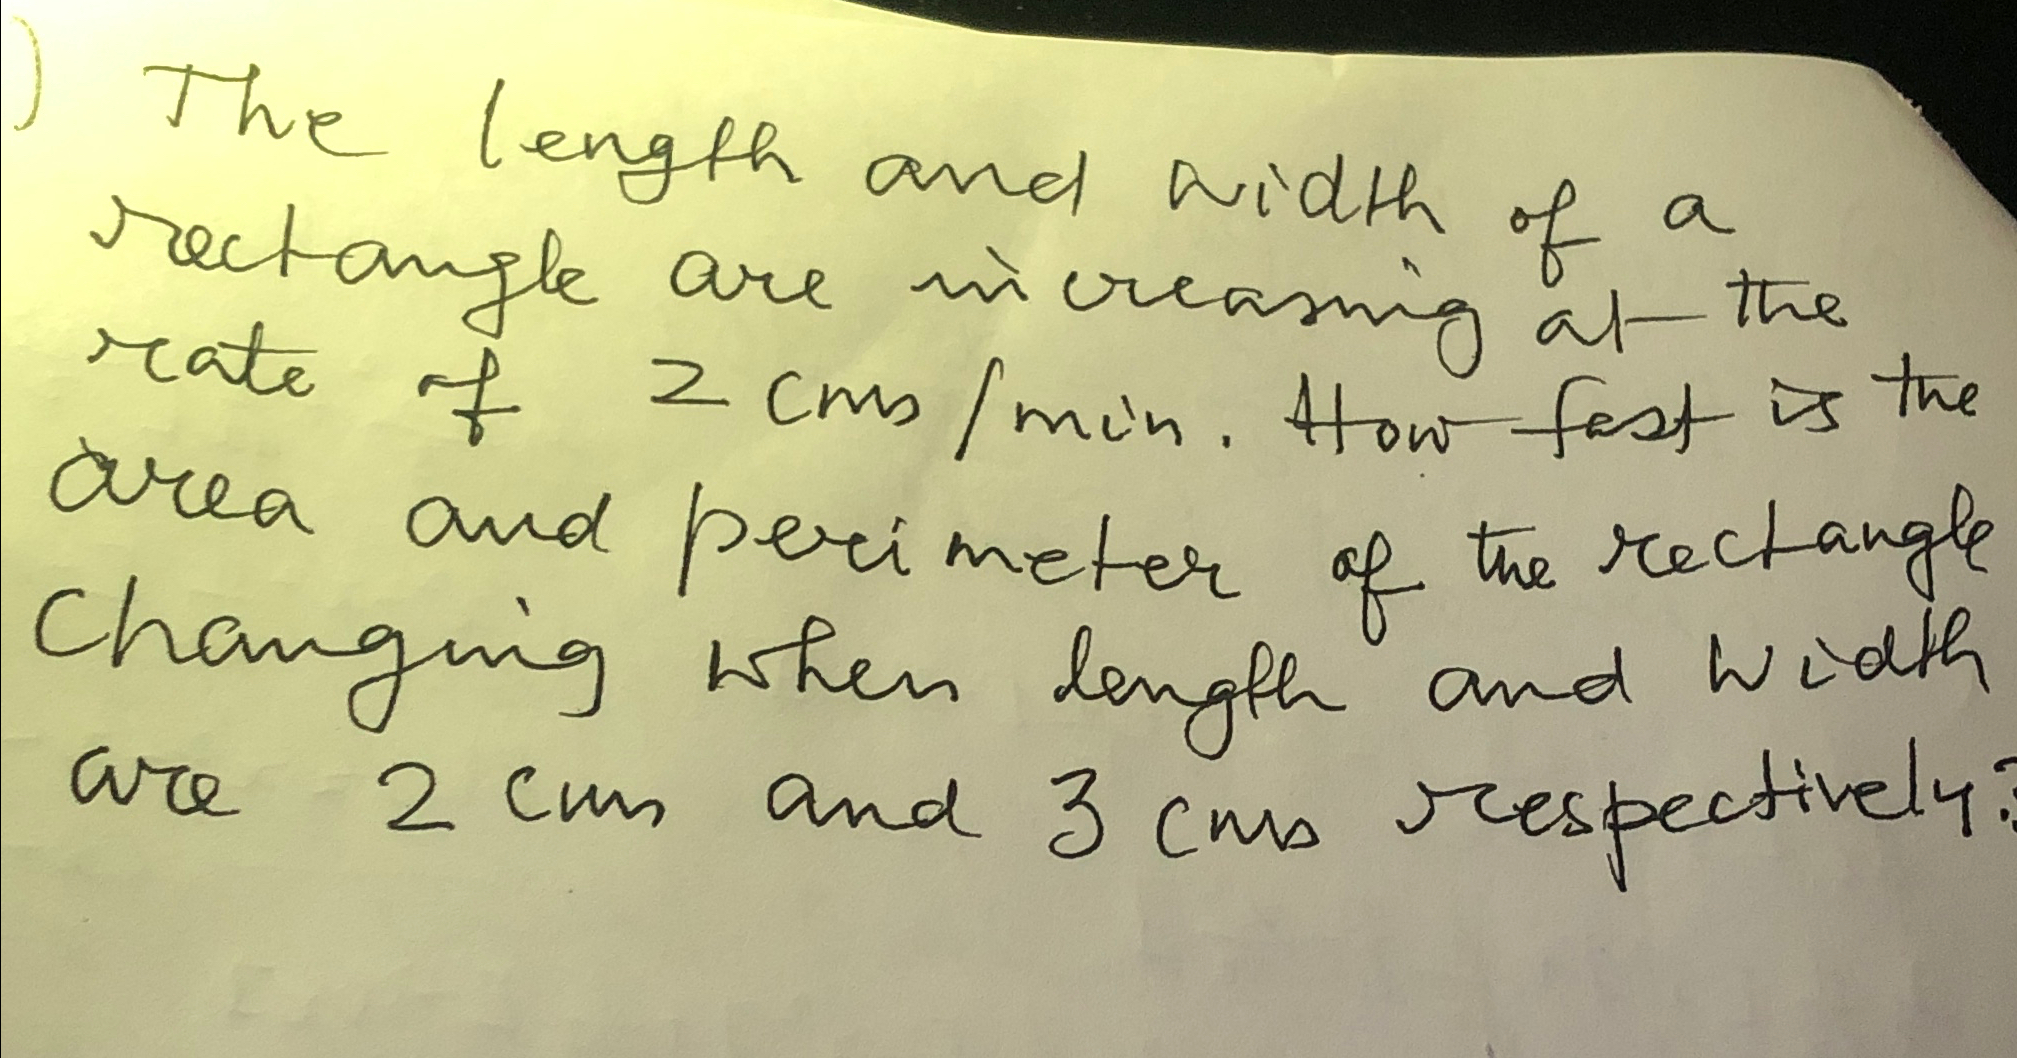 ) The length and width of a
rectangle are increasing at the
rate of 2 cms/min. How fast is the
area and perimeter of the rectangle
Changing when length and width
are 2 cms and 3 cms respectively?